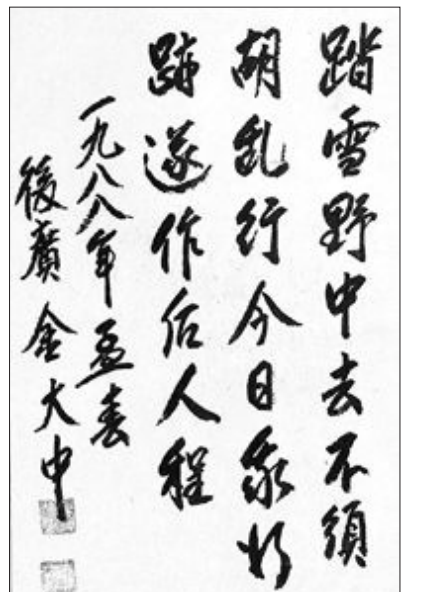 踏雪野中去不須
胡乱行今日我行
跡遂作后人程
一九八八年孟春
後廣金大中